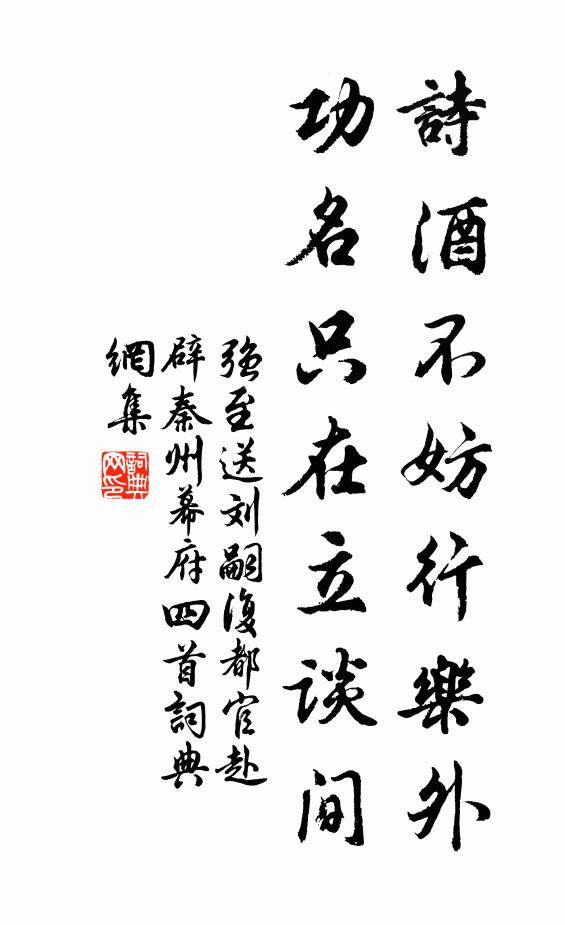 詩酒不妨行樂外
功名只在立談间
强至送刘嗣復都官赴
辟秦州幕府四首詞典
網集
詞典網印